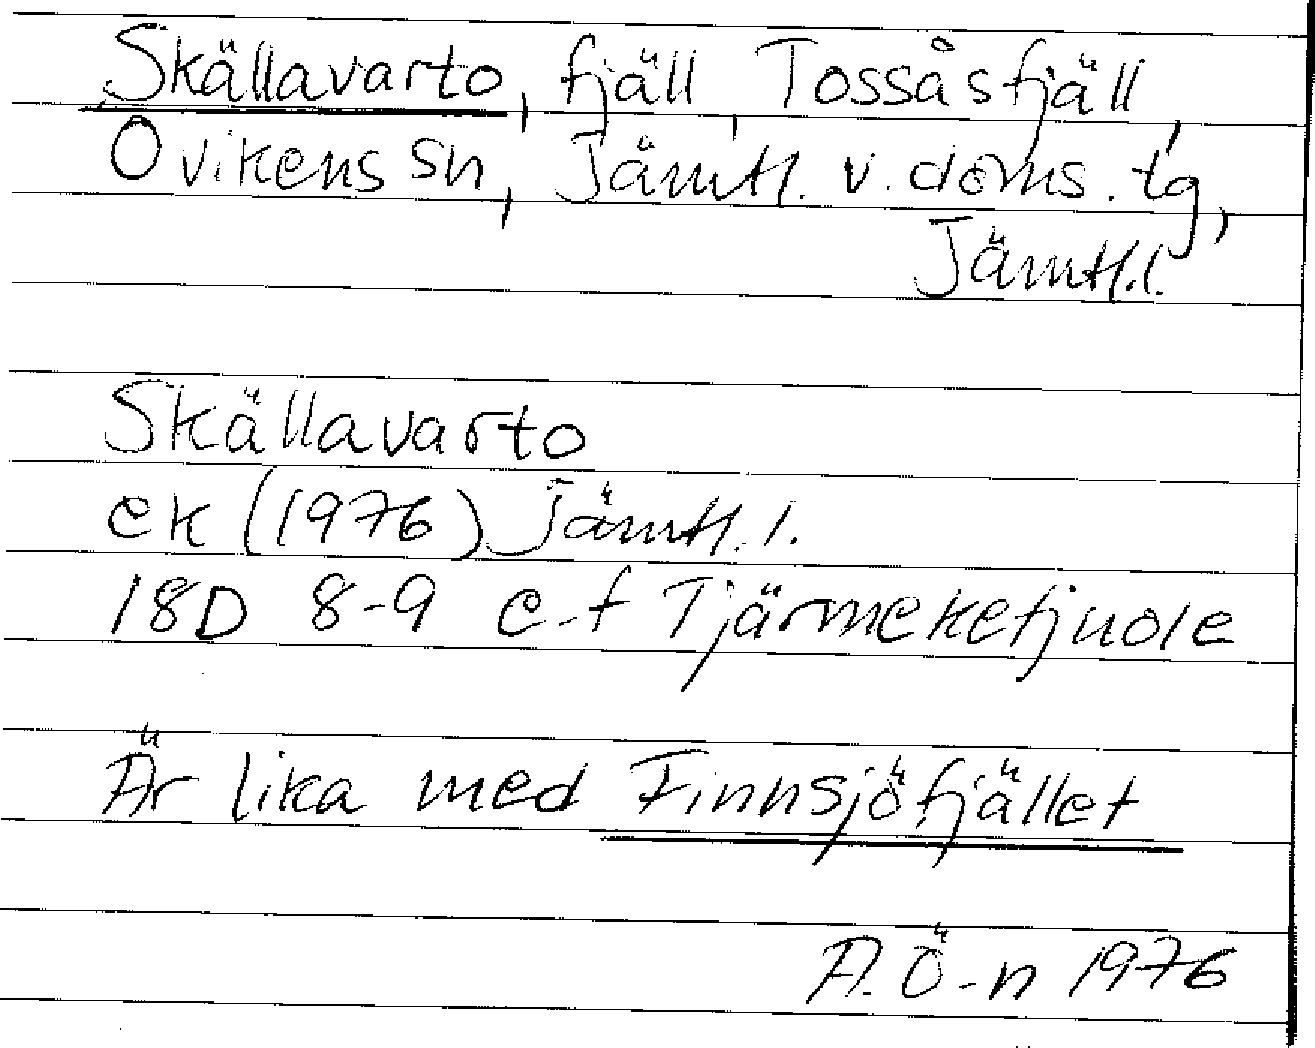 Skällavarto, fjäll, Tossåsfjäll,
Ovikens sn, Jämtl. v. doms. tg,
Jämtl.l.
Skällavarto
ek (1976) Jämtl. l.
18D 8-9 e-f Tjärmeketjuole
Är lika med Finnsjöfjället
A. Ö-n 1976